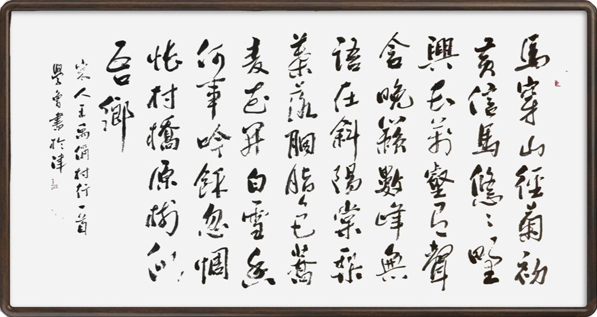 馬穿山徑菊初
黃信馬悠悠野
興長萬壑有聲
含晚籟數峰無
語在斜陽棠梨
葉落胭脂色蕎
麥花開白雪香
何事吟餘忽惆
悵村橋原樹似
吾鄉
宋人王禹偁村行一首
魯書於津